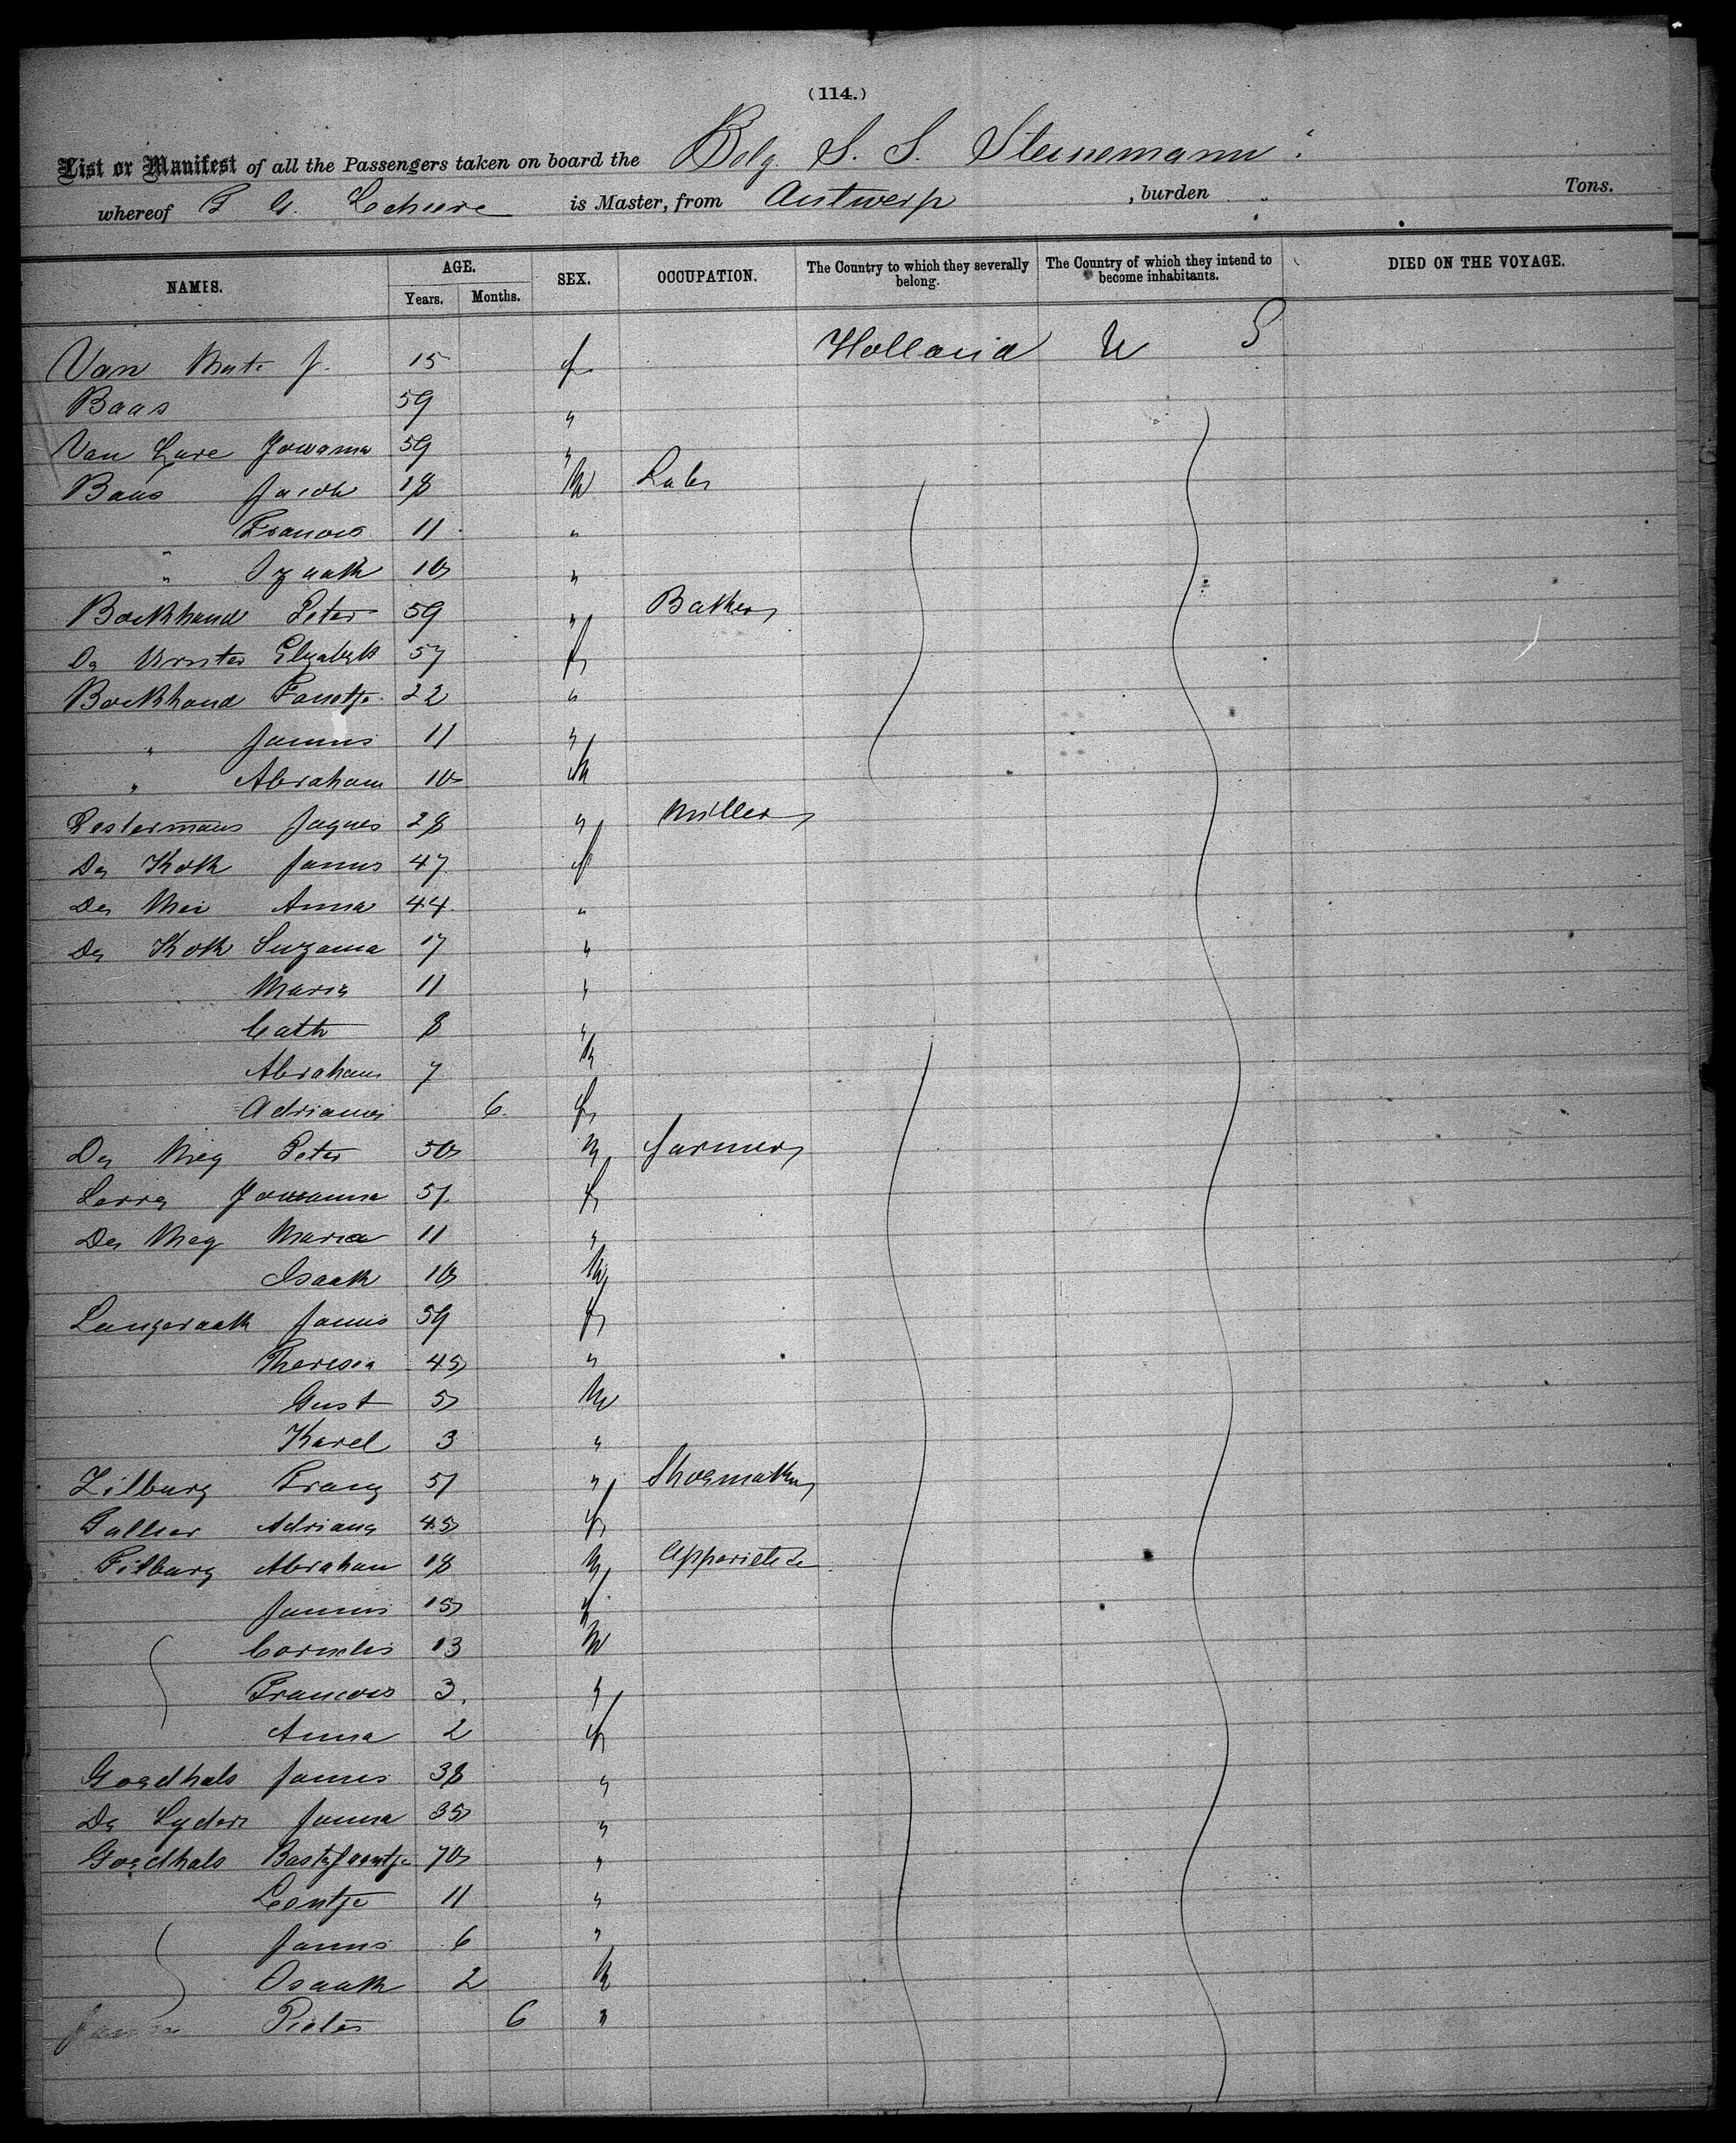 (114.)
List or Manifest of all the Passengers taken on board the Belg. S. S. Steinemann
whereof G. Lchure is Master, from Antwerp , burden Tons.
NAMES. AGE. Years. Months. SEX. OCCUPATION. The Country to which they severally belong. The Country of which they intend to become inhabitants. DIED ON THE VOYAGE.
Van J. 15 f Holland U S
Baas 59 "
Van Jowanna 59 "
Baas Jacob 18 M Labr
" Francois 11 "
" Izaak 10 "
Boekhand Peter 59 " Baker
De Elizabeth 57 f
Boekhand 22 "
" Jannis 11 "
" Abraham 10 M
Jaques 28 " Miller
De Kok Jannis 47 f
De Mei Anna 44 "
De Kok Suzana 17 "
Maria 11 "
Cath 8 "
Abraham 7 M
Adriana 6 f
De Mey Peter 50 M farmer
Jowanna 51 f
De Mey Maria 11 "
Isaak 10 M
Langeraak Jannis 59 f
Theresia 45 "
Gust 5 M
Karel 3 "
Tilburg Franz 51 " Shoemaker
Adriana 45 f
Tilburg Abraham 18 M
Jannis 15 f
Cornelis 13 M
Francois 3 "
Anna 2 f
Goedhals Jannis 38 "
De Janna 35 "
Goedhals 70 "
Leentje 11 "
Jannis 6 "
Isaak 2 M
Pieter 6 "